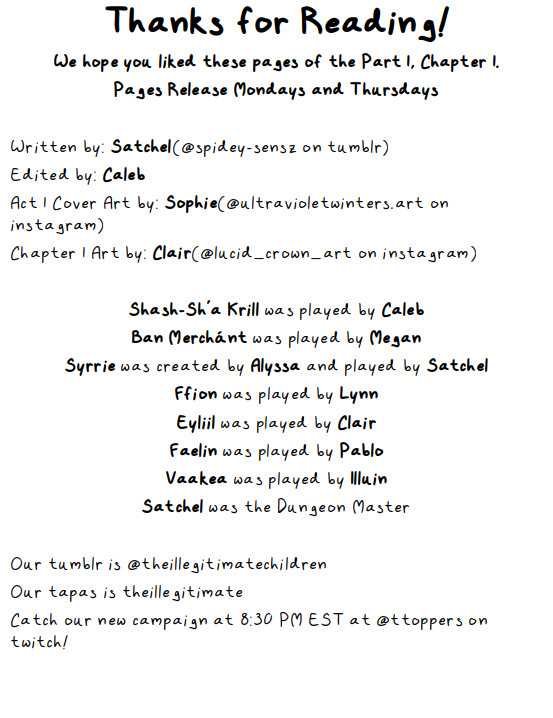 Thanks for Reading!
We hope you liked these pages of the Part 1, Chapter 1.
Pages Release Mondays and Thursdays
Written by: Satchel(@spidey-sensz on tumblr)
Edited by: Caleb
Act 1 Cover Art by: Sophie(@ultravioletwinters.art on
instagram)
Chapter 1 Art by: Clair(@lucid_crown_art on instagram)
Shash-Sh'a Krill was played by Caleb
Ban Merchánt was played by Megan
Syrrie was created by Alyssa and played by Satchel
Ffion was played by Lynn
Eyliil was played by Clair
Faelin was played by Pablo
Vaakea was played by Illuin
Satchel was the Dungeon Master
Our tumblr is @theillegitimatechildren
Our tapas is theillegitimate
Catch our new campaign at 8:30 PM EST at @ttoppers on
twitch!